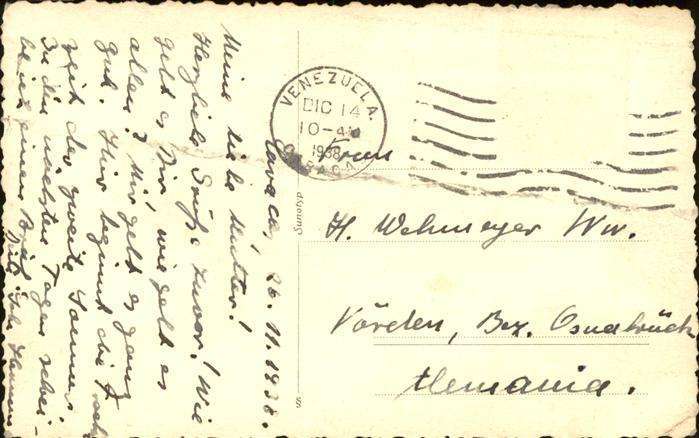 Caracas, 26.11.1938.
Meine liebe Mutter!
Herzliche Grüße zuvor! Wie
geht es Dir, wie geht es
allen? Mir geht es ganz
gut. Hier beginnt die
zeit der zweite Sommer.
In den nächsten Tagen schrei-
be ich einen Brief.
VENEZUELA.
DIC 14
10-AM
1938
CARACAS
Frau
H. Wehmeyer Ww.
Vörden, Bez. Osnabrück
Alemania.